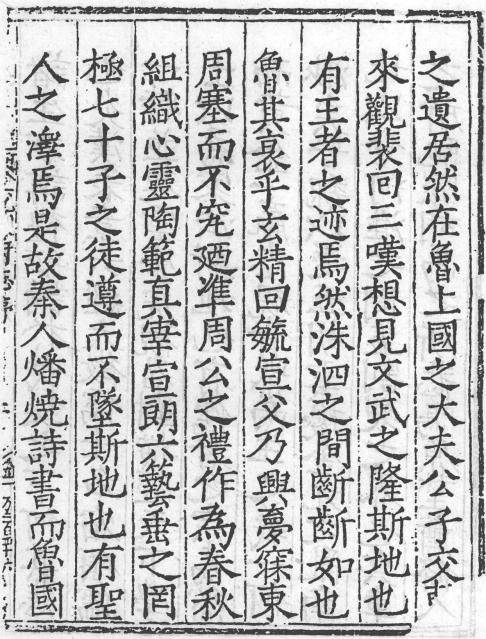 之遺居然在魯上國之大夫公子交
來觀裴回三嘆想見文武之隆斯地也
有王者之迹焉然洙泗之間齗齗如也
魯其衰乎玄精回毓宣父乃興夢寐東
周塞而不究廼準周公之禮作為春秋
組織心靈陶範真宰宣朗六藝垂之罔
極七十子之徒遵而不墜斯地也有聖
人之澤焉是故秦人燔燒詩書而魯國